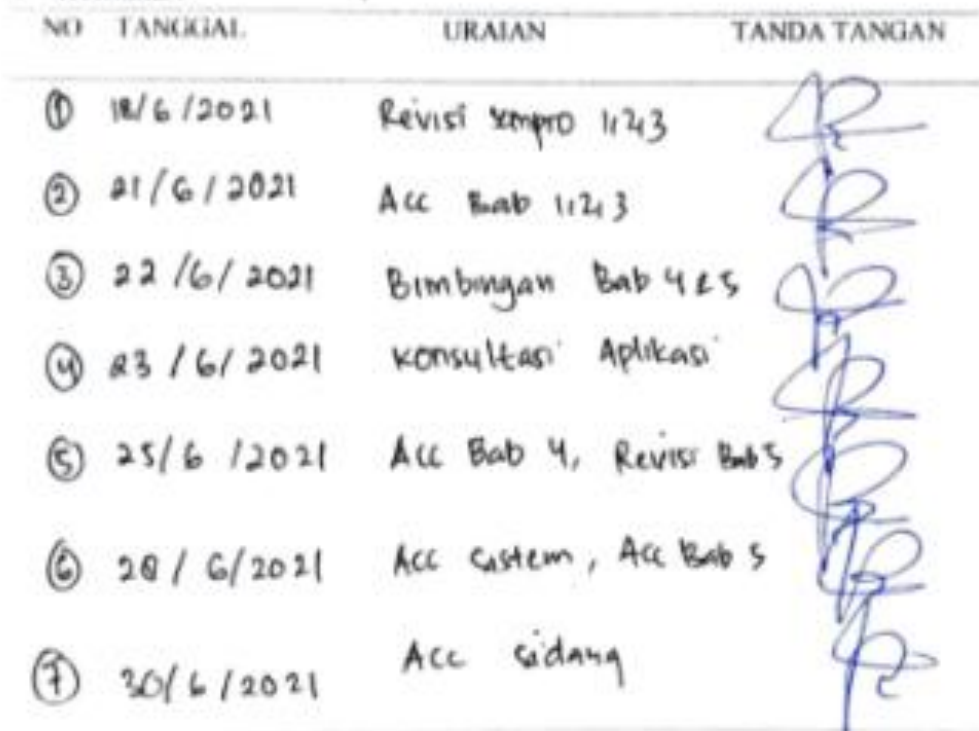 NO TANGGAL URAIAN TANDA TANGAN
① 18/6/2021 Revisi sempro 1,2,3
② 21/6/2021 Acc Bab 1,2,3
③ 22/6/2021 Bimbingan Bab 4 & 5
④ 23/6/2021 Konsultasi Aplikasi
⑤ 25/6/2021 Acc Bab 4, Revisi Bab 5
⑥ 28/6/2021 Acc Sistem, Acc Bab 5
⑦ 30/6/2021 Acc Sidang